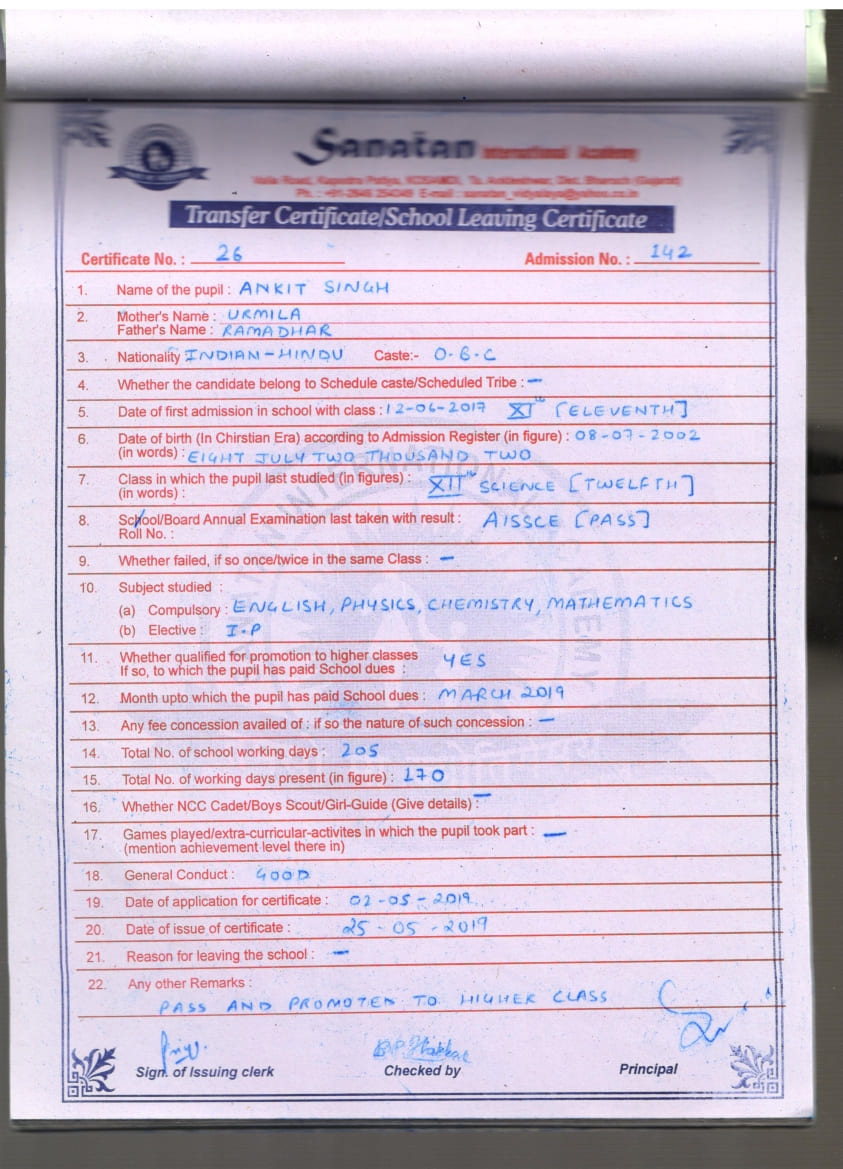 Sanatan International Academy
Valia Road, Kapodra Patiya, KOSAMDI, Ta. Ankleshwar, Dist. Bharuch (Gujarat)
Ph. : E-mail : sanatan_vidyalaya@yahoo.co.in
Transfer Certificate/School Leaving Certificate
Certificate No. : 26 Admission No. : 142
1. Name of the pupil : ANKIT SINGH
2. Mother's Name : URMILA
Father's Name : RAMADHAR
3. Nationality INDIAN-HINDU Caste:- O.B.C
4. Whether the candidate belong to Schedule caste/Scheduled Tribe : —
5. Date of first admission in school with class : 12-06-2017 XI th [ELEVENTH]
6. Date of birth (In Chirstian Era) according to Admission Register (in figure) : 08-07-2002
(in words) : EIGHT JULY TWO THOUSAND TWO
7. Class in which the pupil last studied (in figures) : XII th SCIENCE [TWELFTH]
(in words) :
8. School/Board Annual Examination last taken with result : AISSCE [PASS]
Roll No. :
9. Whether failed, if so once/twice in the same Class : —
10. Subject studied :
(a) Compulsory : ENGLISH, PHYSICS, CHEMISTRY, MATHEMATICS
(b) Elective : I.P
11. Whether qualified for promotion to higher classes YES
If so, to which the pupil has paid School dues :
12. Month upto which the pupil has paid School dues : MARCH 2019
13. Any fee concession availed of : if so the nature of such concession : —
14. Total No. of school working days : 205
15. Total No. of working days present (in figure) : 170
16. Whether NCC Cadet/Boys Scout/Girl-Guide (Give details) : —
17. Games played/extra-curricular-activites in which the pupil took part : —
(mention achievement level there in)
18. General Conduct : GOOD
19. Date of application for certificate : 02-05-2019
20. Date of issue of certificate : 25-05-2019
21. Reason for leaving the school : —
22. Any other Remarks :
PASS AND PROMOTED TO HIGHER CLASS
Sign. of Issuing clerk Checked by Principal
SANATAN INTERNATIONAL ACADEMY